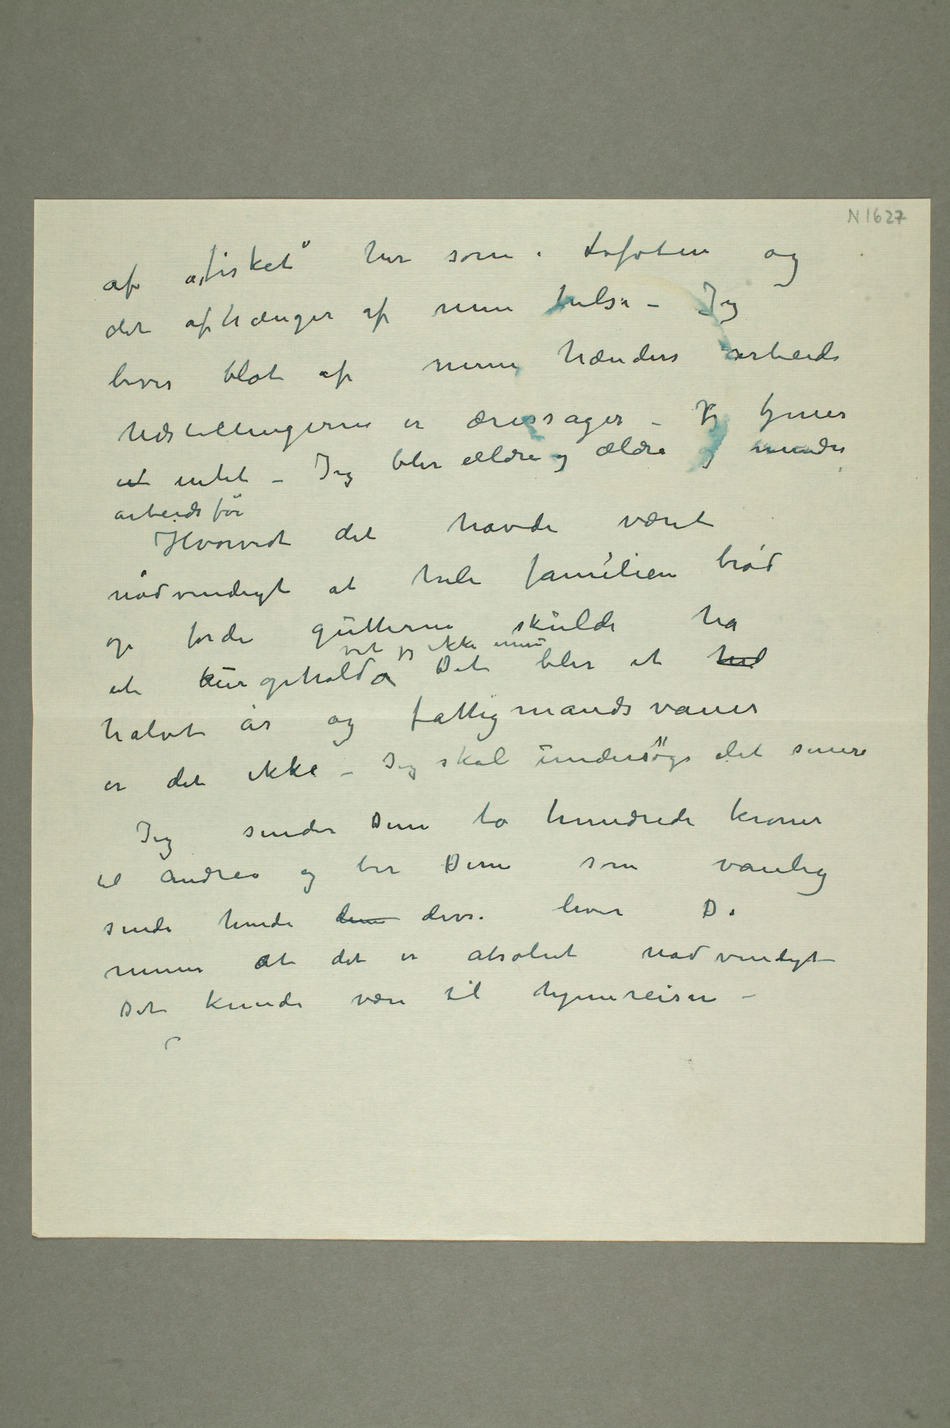 N 1627
af „fisket“ her som i Lofoten og
det afhænger af min helse – Jeg
lever blot af mine hænders arbeide
Udstillingerne er æressager – Jeg tjener
intet – Jeg blir ældre og ældre og mindre
arbeidsfør
Hvorvidt det havde været
nødvendigt at hele familien brød
op fordi gutterne skulde ha
vet jeg ikke ennu
et kurophold Det blir et hel
halvt år og fattigmandsvaner
er det ikke – Jeg skal undersøge det senere
Jeg sender Dem to hundrede kroner
til Andrea og ber Dem som vanlig
sende hende dem ders. hvis De
mener at det er absolut nødvendigt
Det kunde være til hjemreisen –